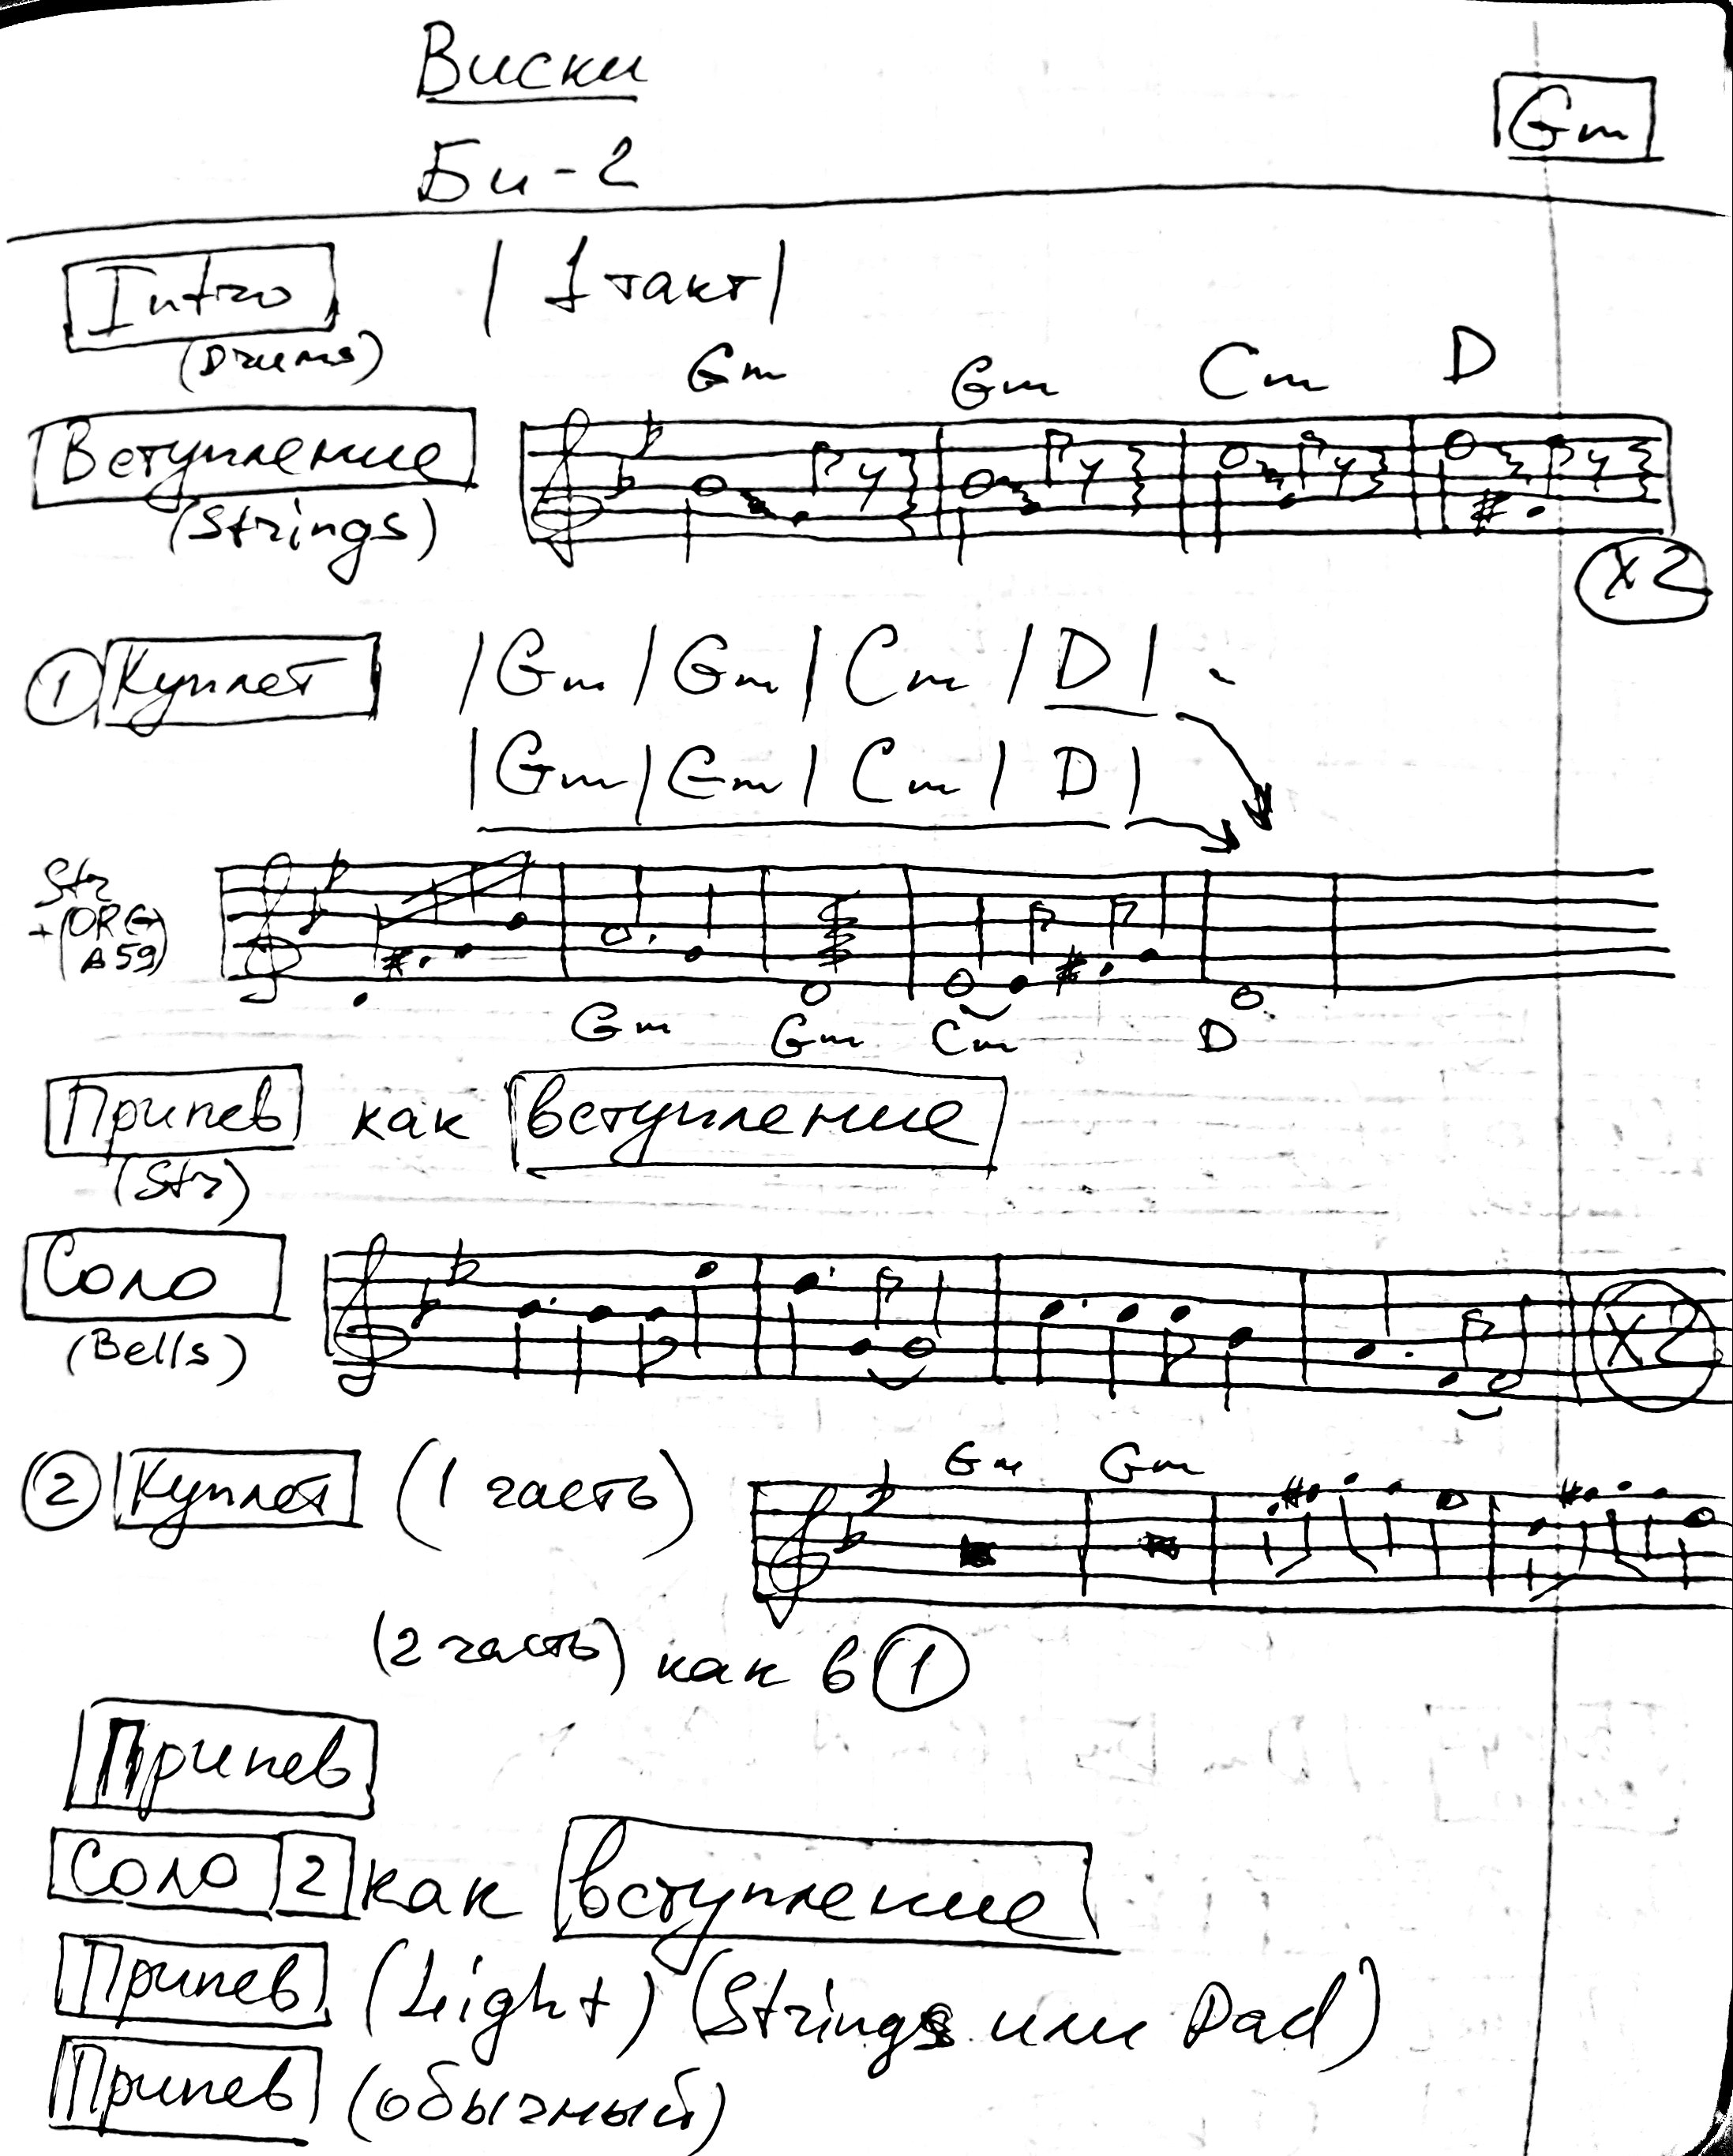 Виски
Gm
Би-2
Intro | 1 такт |
(Drums)
Gm Gm Cm D
Вступление
(Strings)
x2
1 Куплет | Gm | Gm | Cm | D |
| Gm | Gm | Cm | D |
Str
+ (ORG
A59)
Gm Gm Cm D
Припев как вступление
(Str)
Соло
(Bells)
x2
Gm Gm
2 Куплет (1 часть)
(2 часть) как в 1
Припев
Соло 2 как вступление
Припев (Light) (Strings или Pad)
Припев (обычный)